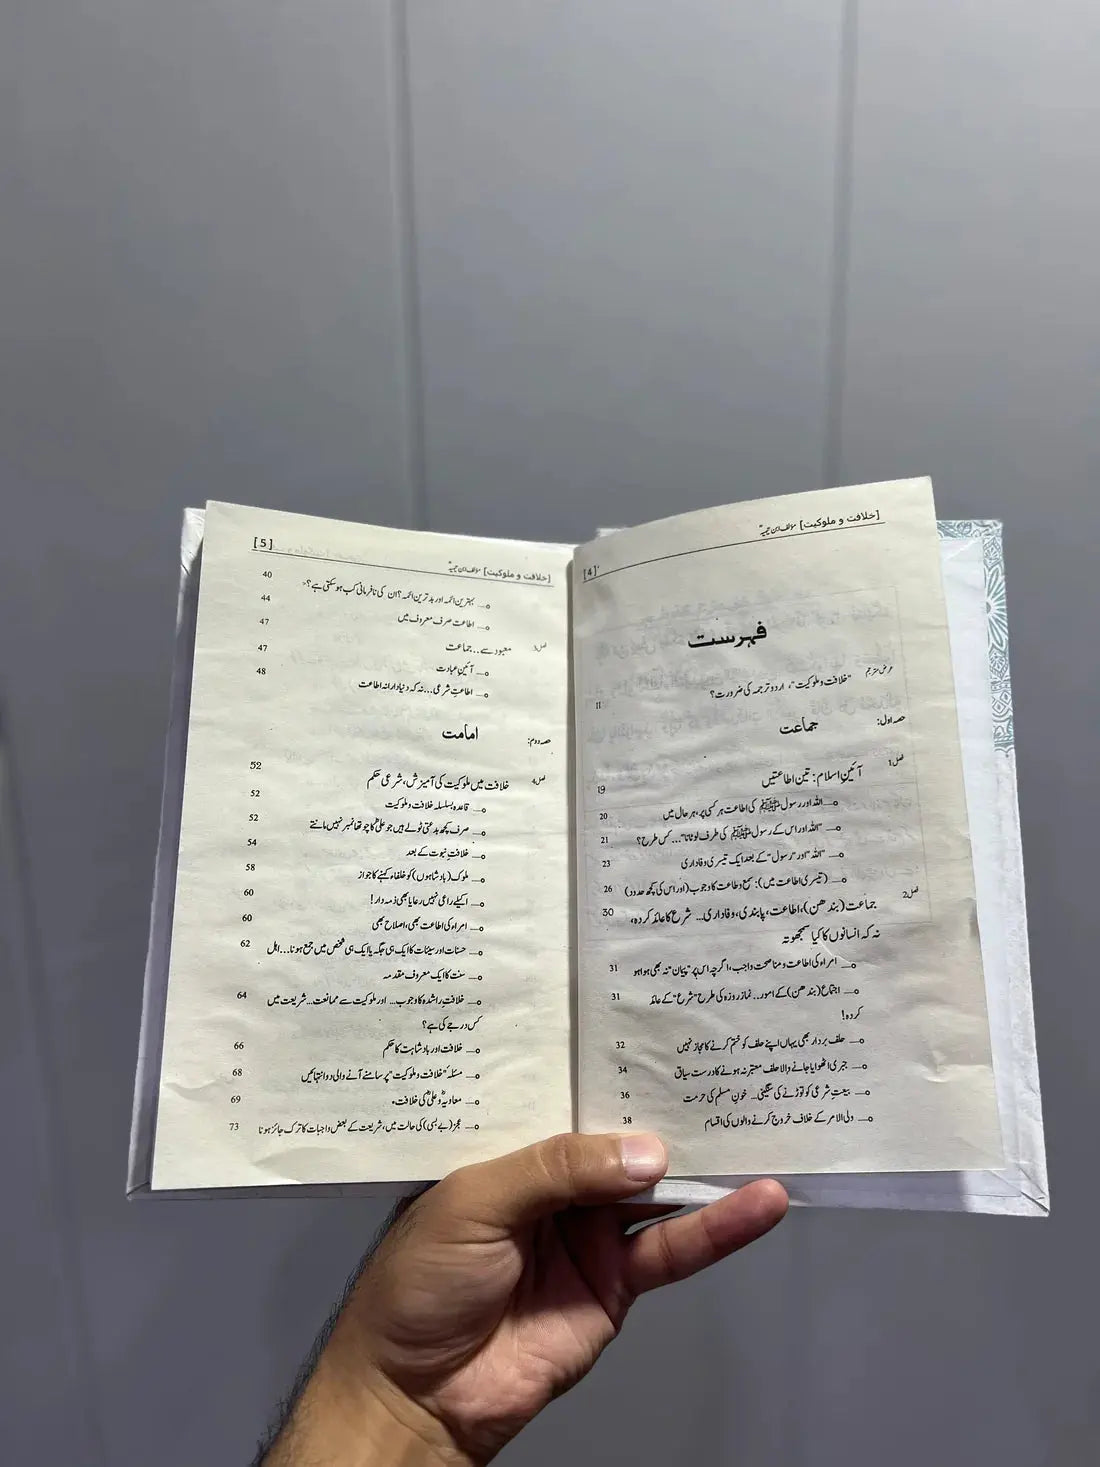 [4] [خلافت و ملوکیت] مؤلف ابن تیمیہؒ
فہرست
عرض مترجم "خلافت و ملوکیت"، اردو ترجمہ کی ضرورت؟ 11
حصہ اول: جماعت
فصل1 آئینِ اسلام: تین اطاعتیں 19
o— اللہ اور رسول ﷺ کی اطاعت ہر کسی پر، ہر حال میں 20
o— "اللہ اور اس کے رسول ﷺ کی طرف لوٹانا"... کس طرح؟ 21
o— "اللہ" اور "رسول" کے بعد ایک تیسری وفاداری 23
o— (تیسری اطاعت میں): سمع و طاعت کا وجوب (اور اس کی کچھ حدود) 26
فصل2 جماعت (بندھن)، اطاعت، پابندی، وفاداری... شرع کا عائد کردہ، 30
نہ کہ انسانوں کا کیا سمجھوتہ
o— امراء کی اطاعت و مناصحت واجب، اگرچہ اس پر "پیمان" نہ بھی ہوا ہو 31
o— اجتماع (بندھن) کے امور.. نماز روزہ کی طرح "شرع" کے عائد 31
کردہ!
o— حلف بردار بھی یہاں اپنے حلف کو ختم کرنے کا مجاز نہیں 32
o— جبری اٹھوایا جانے والا حلف معتبر نہ ہونے کا درست سیاق 34
o— بیعتِ شرعی کو توڑنے کی سنگینی.. خونِ مسلم کی حرمت 36
o— ولی الامر کے خلاف خروج کرنے والوں کی اقسام 38
[5] [خلافت و ملوکیت] مؤلف ابن تیمیہؒ
o— بہترین ائمہ اور بدترین ائمہ؟ ان کی نافرمانی کب ہو سکتی ہے؟ 40
o— اطاعت صرف معروف میں 44
فصل3 معبود سے... جماعت 47
o— آئینِ عبادت 47
o— اطاعتِ شرعی... نہ کہ دنیادارانہ اطاعت 48
حصہ دوم: امامت
فصل4 خلافت میں ملوکیت کی آمیزش، شرعی حکم 52
o— قاعدہ بسلسلہ خلافت و ملوکیت 52
o— صرف کچھ بدعتی ٹولے ہیں جو علیؓ کا چوتھا نمبر نہیں مانتے 52
o— خلافتِ نبوت کے بعد 54
o— ملوک (بادشاہوں) کو خلفاء کہنے کا جواز 58
o— اکیلے راعی نہیں رعایا بھی ذمہ دار! 60
o— امراء کی اطاعت بھی، اصلاح بھی 60
o— حسنات اور سیئات کا ایک ہی جگہ یا ایک ہی شخص میں جمع ہونا... اہل 62
سنت کا ایک معروف مقدمہ
o— خلافتِ راشدہ کا وجوب... اور ملوکیت سے ممانعت... شریعت میں 64
کس درجے کی ہے؟
o— خلافت اور بادشاہت کا حکم 66
o— مسئلہ "خلافت و ملوکیت" پر سامنے آنے والی دو انتہائیں 68
o— معاویہؓ و علیؓ کی خلافت 69
o— عجز (بے بسی) کی حالت میں، شریعت کے بعض واجبات کا ترک جائز ہونا 73